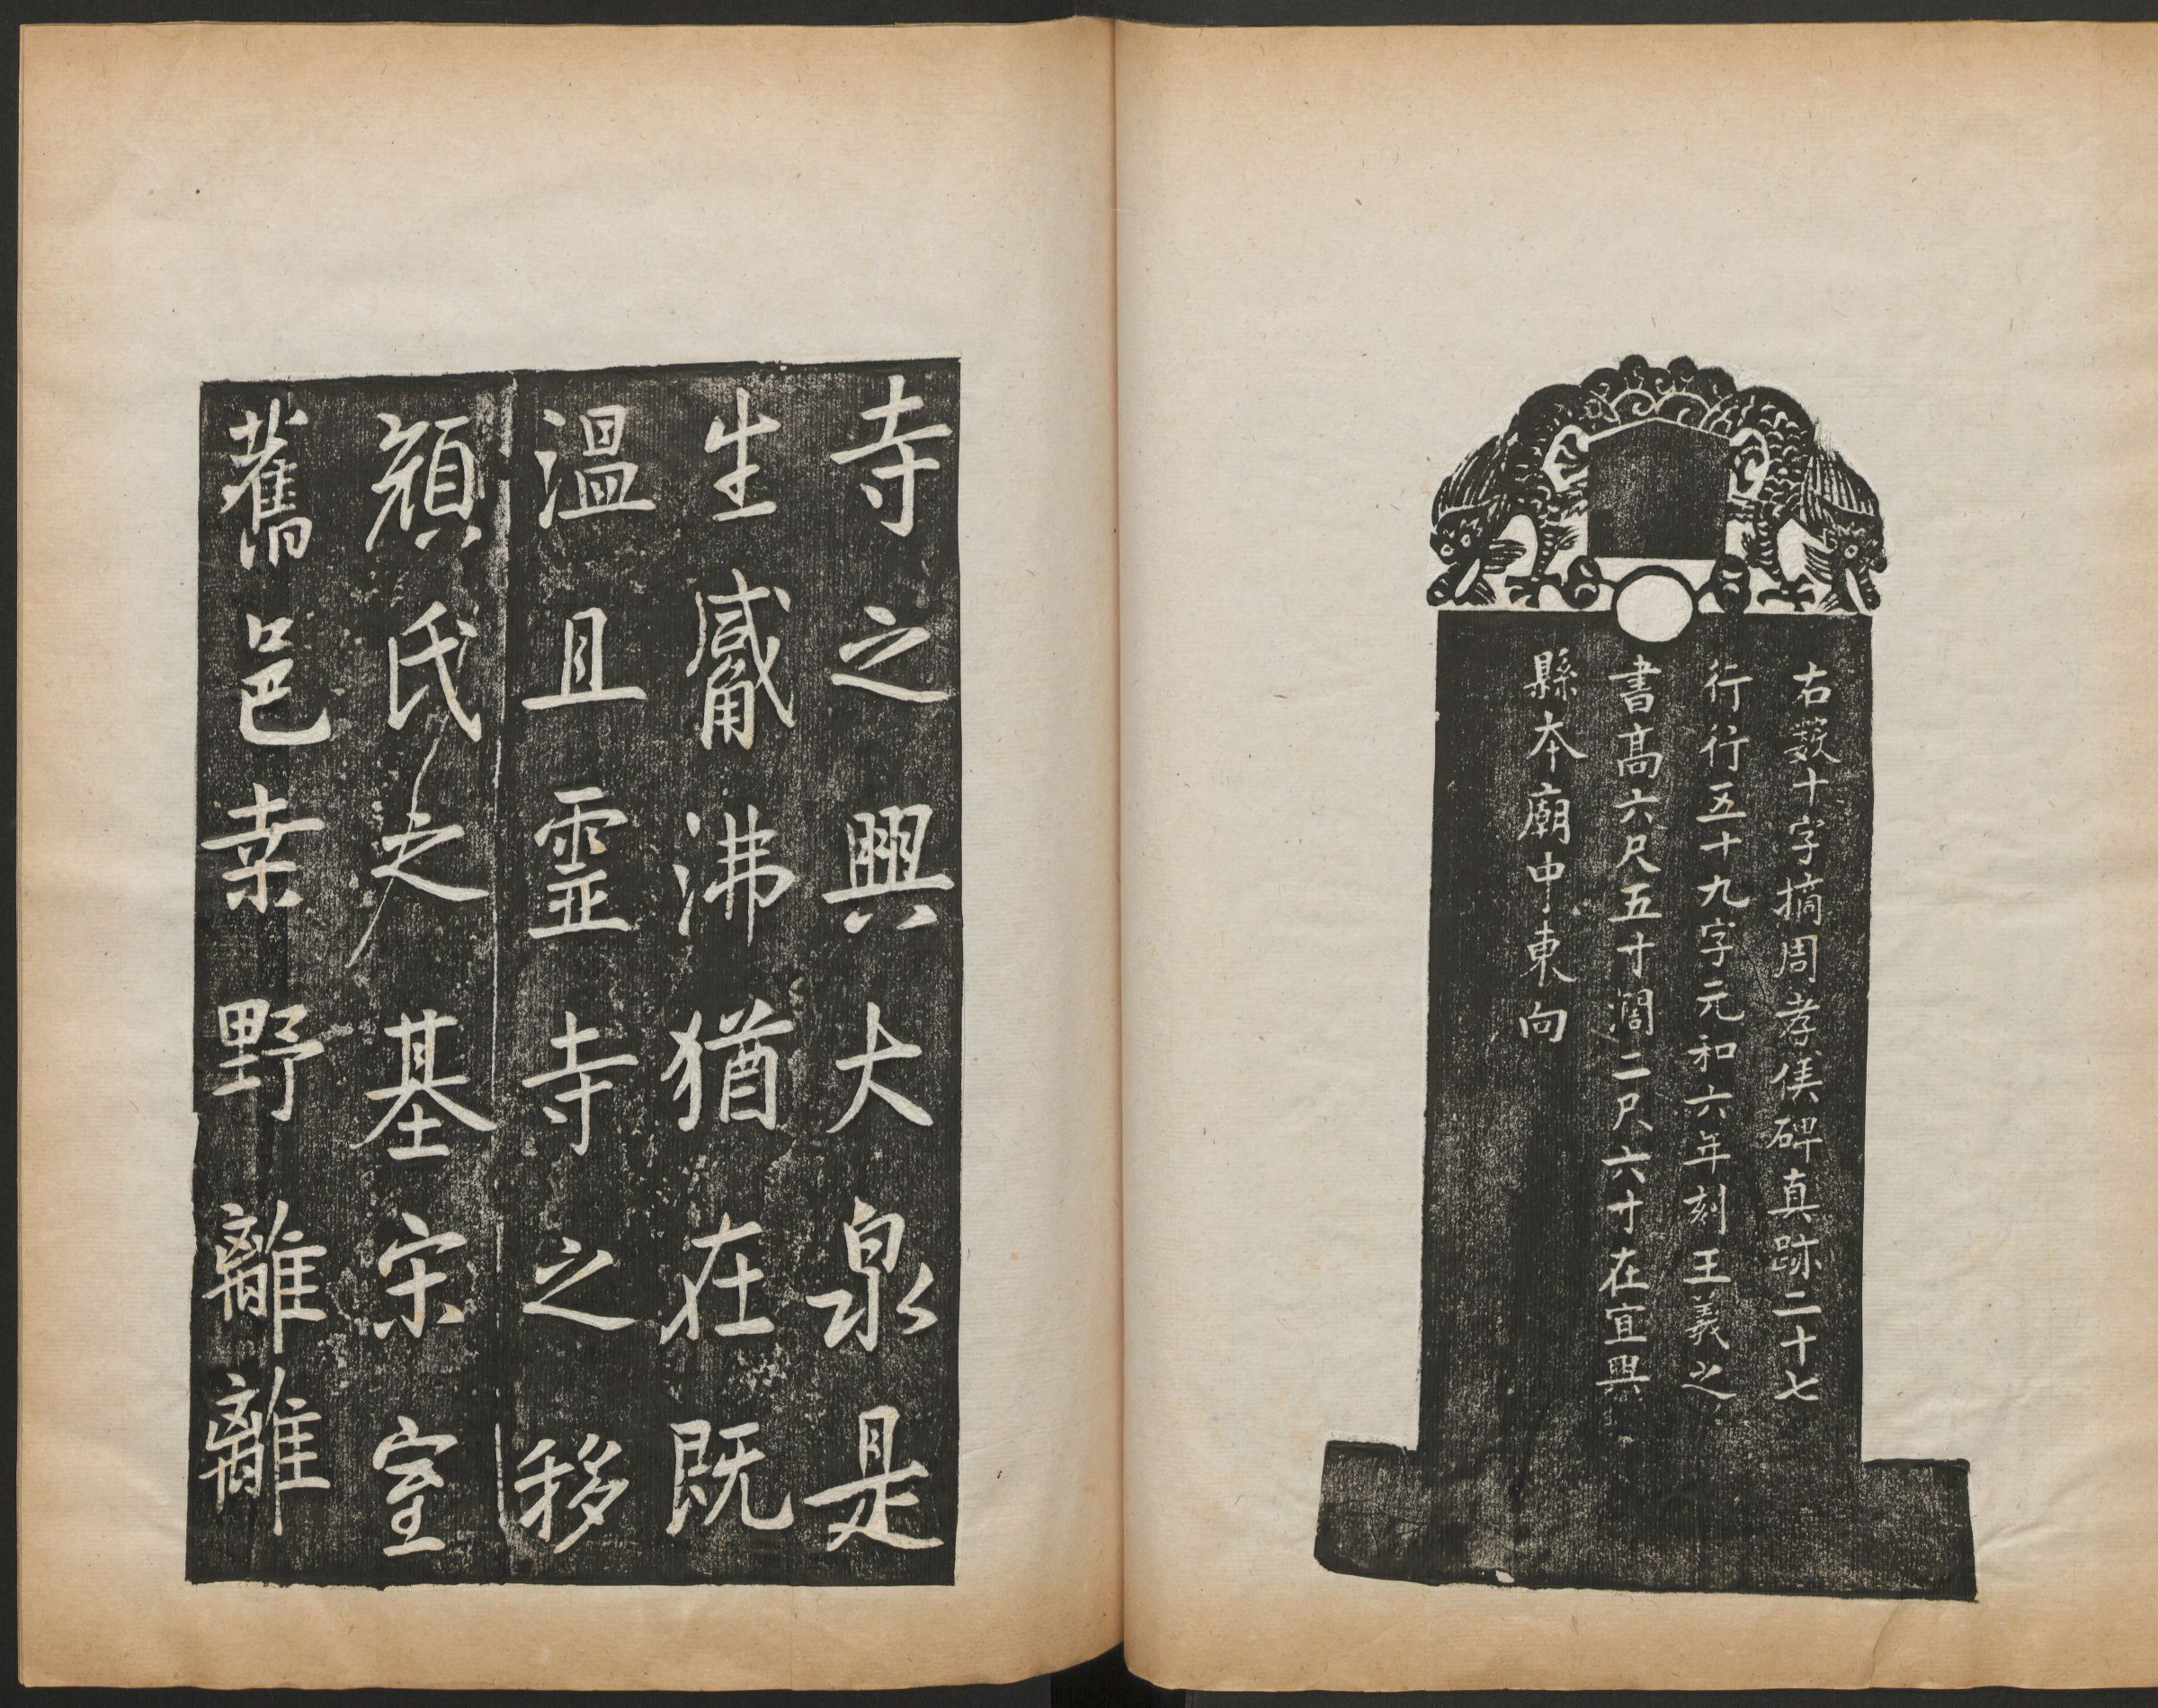 右數十字摘周孝侯碑真跡二十七
行行五十九字元和六年刻王羲之
書高六尺五寸濶二尺六寸在宜興
縣本廟中東向
寺之興大泉是
生觱沸猶在既
溫且靈寺之移
頹氏之基宋室
舊邑桒野離離